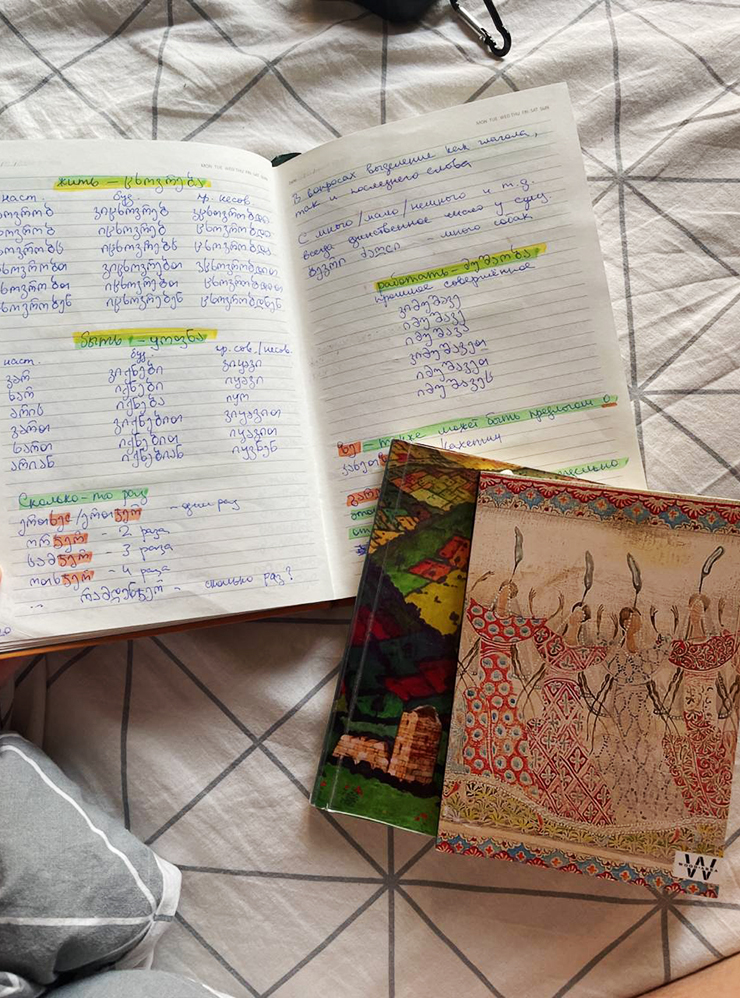 MON TUE WED THU FRI SAT SUN
жить – ცხოვრება
наст. буд. пр. несов.
ვიცხოვრებ ვცხოვრობდი
იცხოვრებ ცხოვრობდი
იცხოვრებს ცხოვრობდა
ვიცხოვრებთ ვცხოვრობდით
იცხოვრებთ ცხოვრობდით
იცხოვრებენ ცხოვრობდნენ
быть – ყოფნა
наст. буд. пр. сов./несов.
ვარ ვიქნები ვიყავი
ხარ იქნები იყავი
არის იქნება იყო
ვართ ვიქნებით ვიყავით
ხართ იქნებით იყავით
არიან იქნებიან იყვნენ
Сколько-то раз
ერთხელ/ერთჯერ – один раз
ორჯერ – 2 раза
სამჯერ – 3 раза
ოთხჯერ – 4 раза
... რამდენჯერ – сколько раз?
MON TUE WED THU FRI SAT SUN
В вопросах выделение как глагола,
так и последнего слова
С много/мало/немного и т.д.
всегда единственное число у сущ.
ბევრი ძაღლი – много собак
работать – მუშაობა
прошлое совершенное
ვიმუშავე
იმუშავე
იმუშავა
ვიმუშავეთ
იმუშავეთ
იმუშავეს
ზე – также может быть предлогом о
Кахетии
W